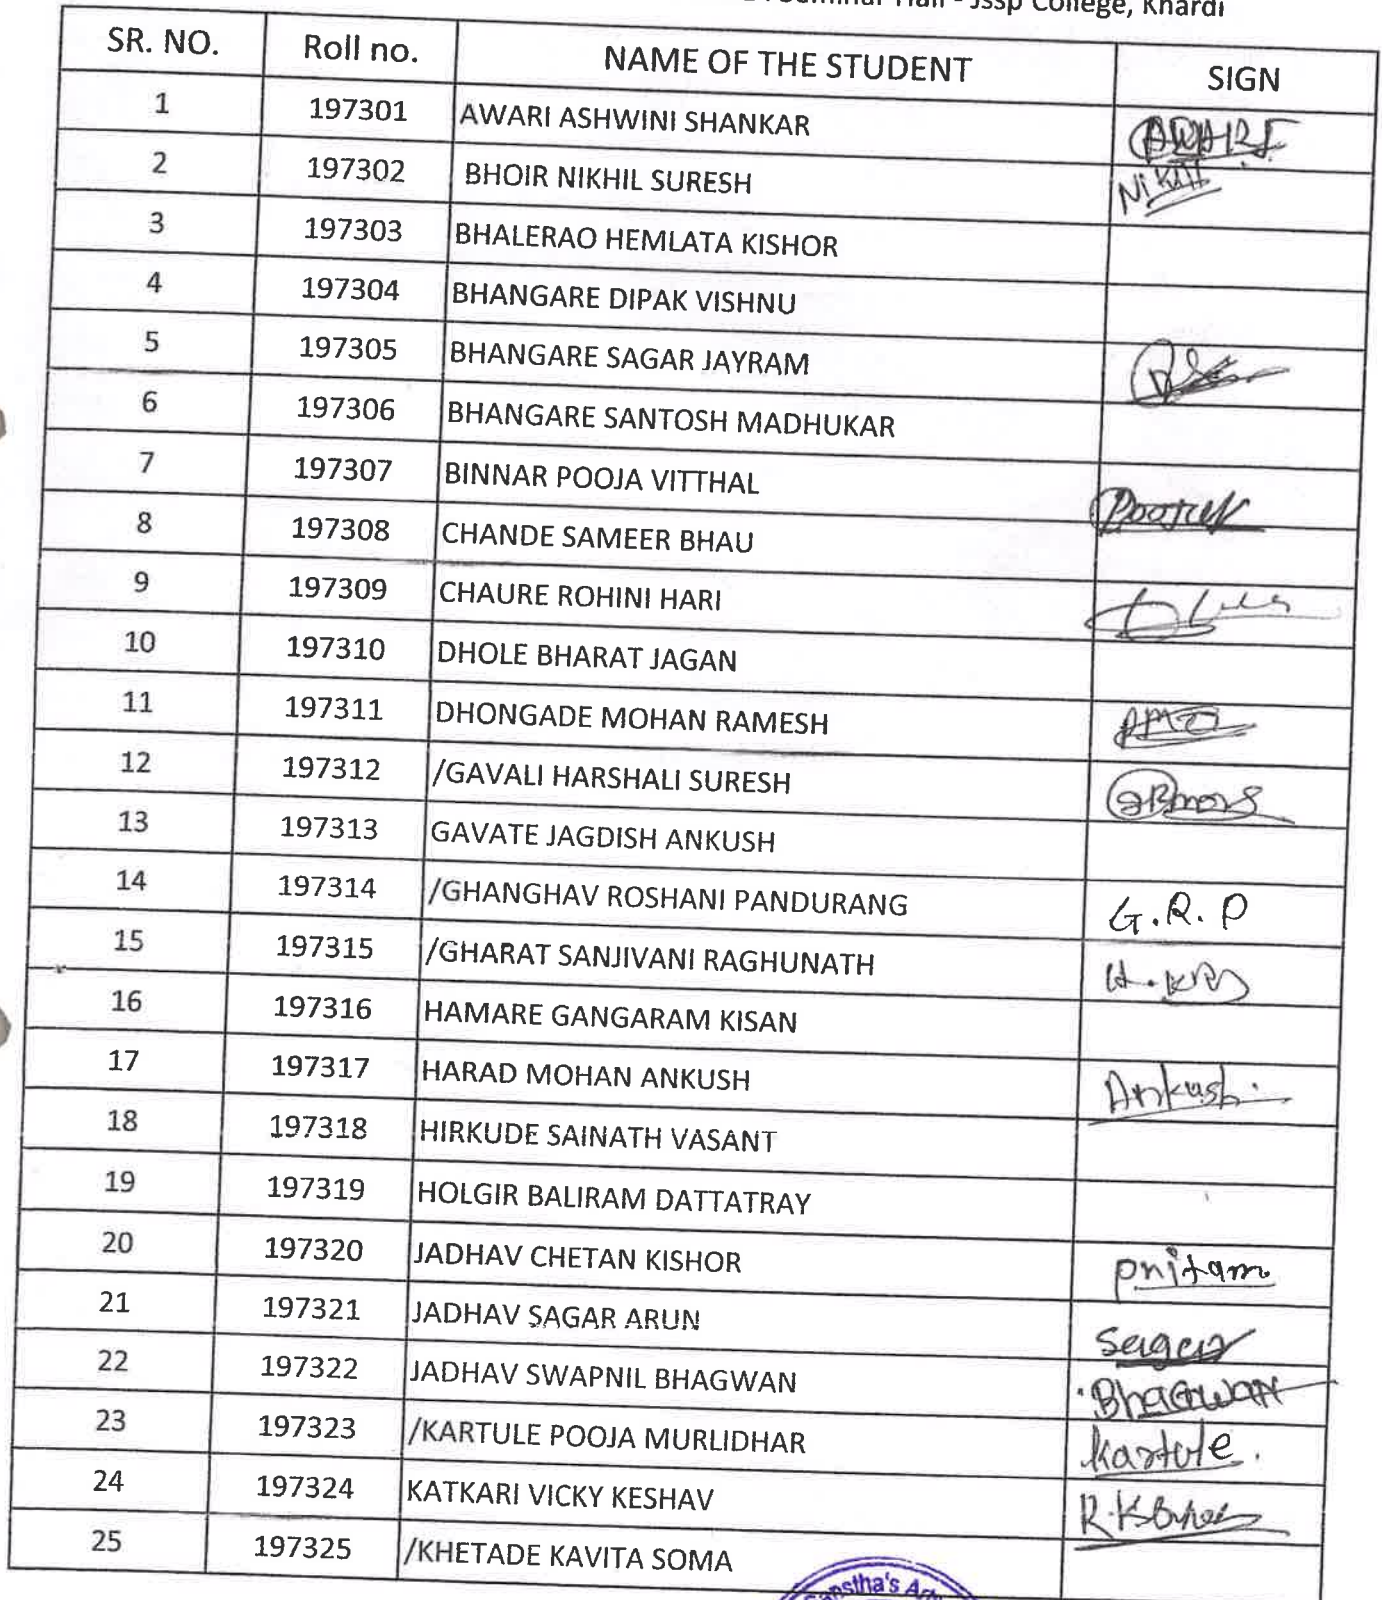 Seminar Hall - Jssp College, Khardi
SR. NO. Roll no. NAME OF THE STUDENT SIGN
1 197301 AWARI ASHWINI SHANKAR AWARI
2 197302 BHOIR NIKHIL SURESH Nikhil
3 197303 BHALERAO HEMLATA KISHOR
4 197304 BHANGARE DIPAK VISHNU
5 197305 BHANGARE SAGAR JAYRAM
6 197306 BHANGARE SANTOSH MADHUKAR
7 197307 BINNAR POOJA VITTHAL
8 197308 CHANDE SAMEER BHAU
9 197309 CHAURE ROHINI HARI
10 197310 DHOLE BHARAT JAGAN
11 197311 DHONGADE MOHAN RAMESH
12 197312 /GAVALI HARSHALI SURESH
13 197313 GAVATE JAGDISH ANKUSH
14 197314 /GHANGHAV ROSHANI PANDURANG G.R.P
15 197315 /GHARAT SANJIVANI RAGHUNATH
16 197316 HAMARE GANGARAM KISAN
17 197317 HARAD MOHAN ANKUSH Ankush
18 197318 HIRKUDE SAINATH VASANT
19 197319 HOLGIR BALIRAM DATTATRAY
20 197320 JADHAV CHETAN KISHOR pritam
21 197321 JADHAV SAGAR ARUN Sagar
22 197322 JADHAV SWAPNIL BHAGWAN BHAGWAN
23 197323 /KARTULE POOJA MURLIDHAR kartule.
24 197324 KATKARI VICKY KESHAV
25 197325 /KHETADE KAVITA SOMA